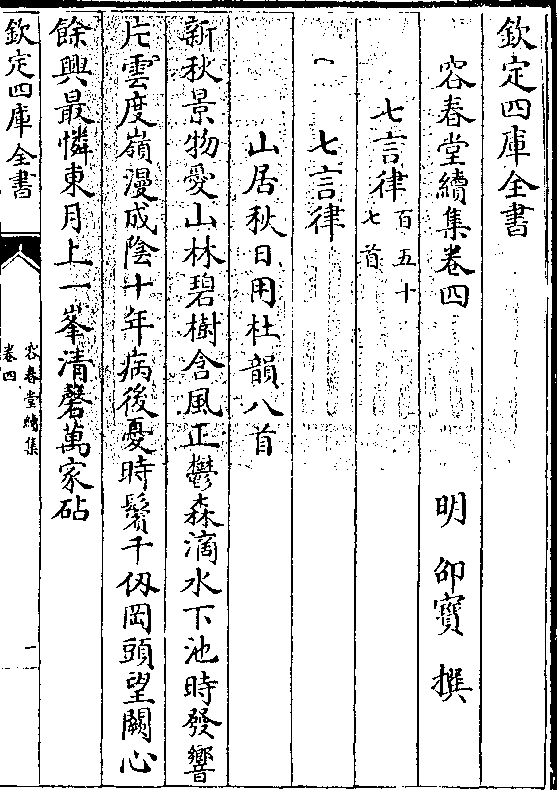 欽定四庫全書
容春堂續集卷四
明 邵寶 撰
七言律百五十七首
七言律
山居秋日用杜韻八首
新秋景物愛山林碧樹含風正鬱森滴水下池時發響
片雲度嶺漫成陰十年病後憂時鬢千仭岡頭望闕心
餘興最憐東月上一峯清磬萬家砧
欽定四庫全書
容春堂續集
卷四
一